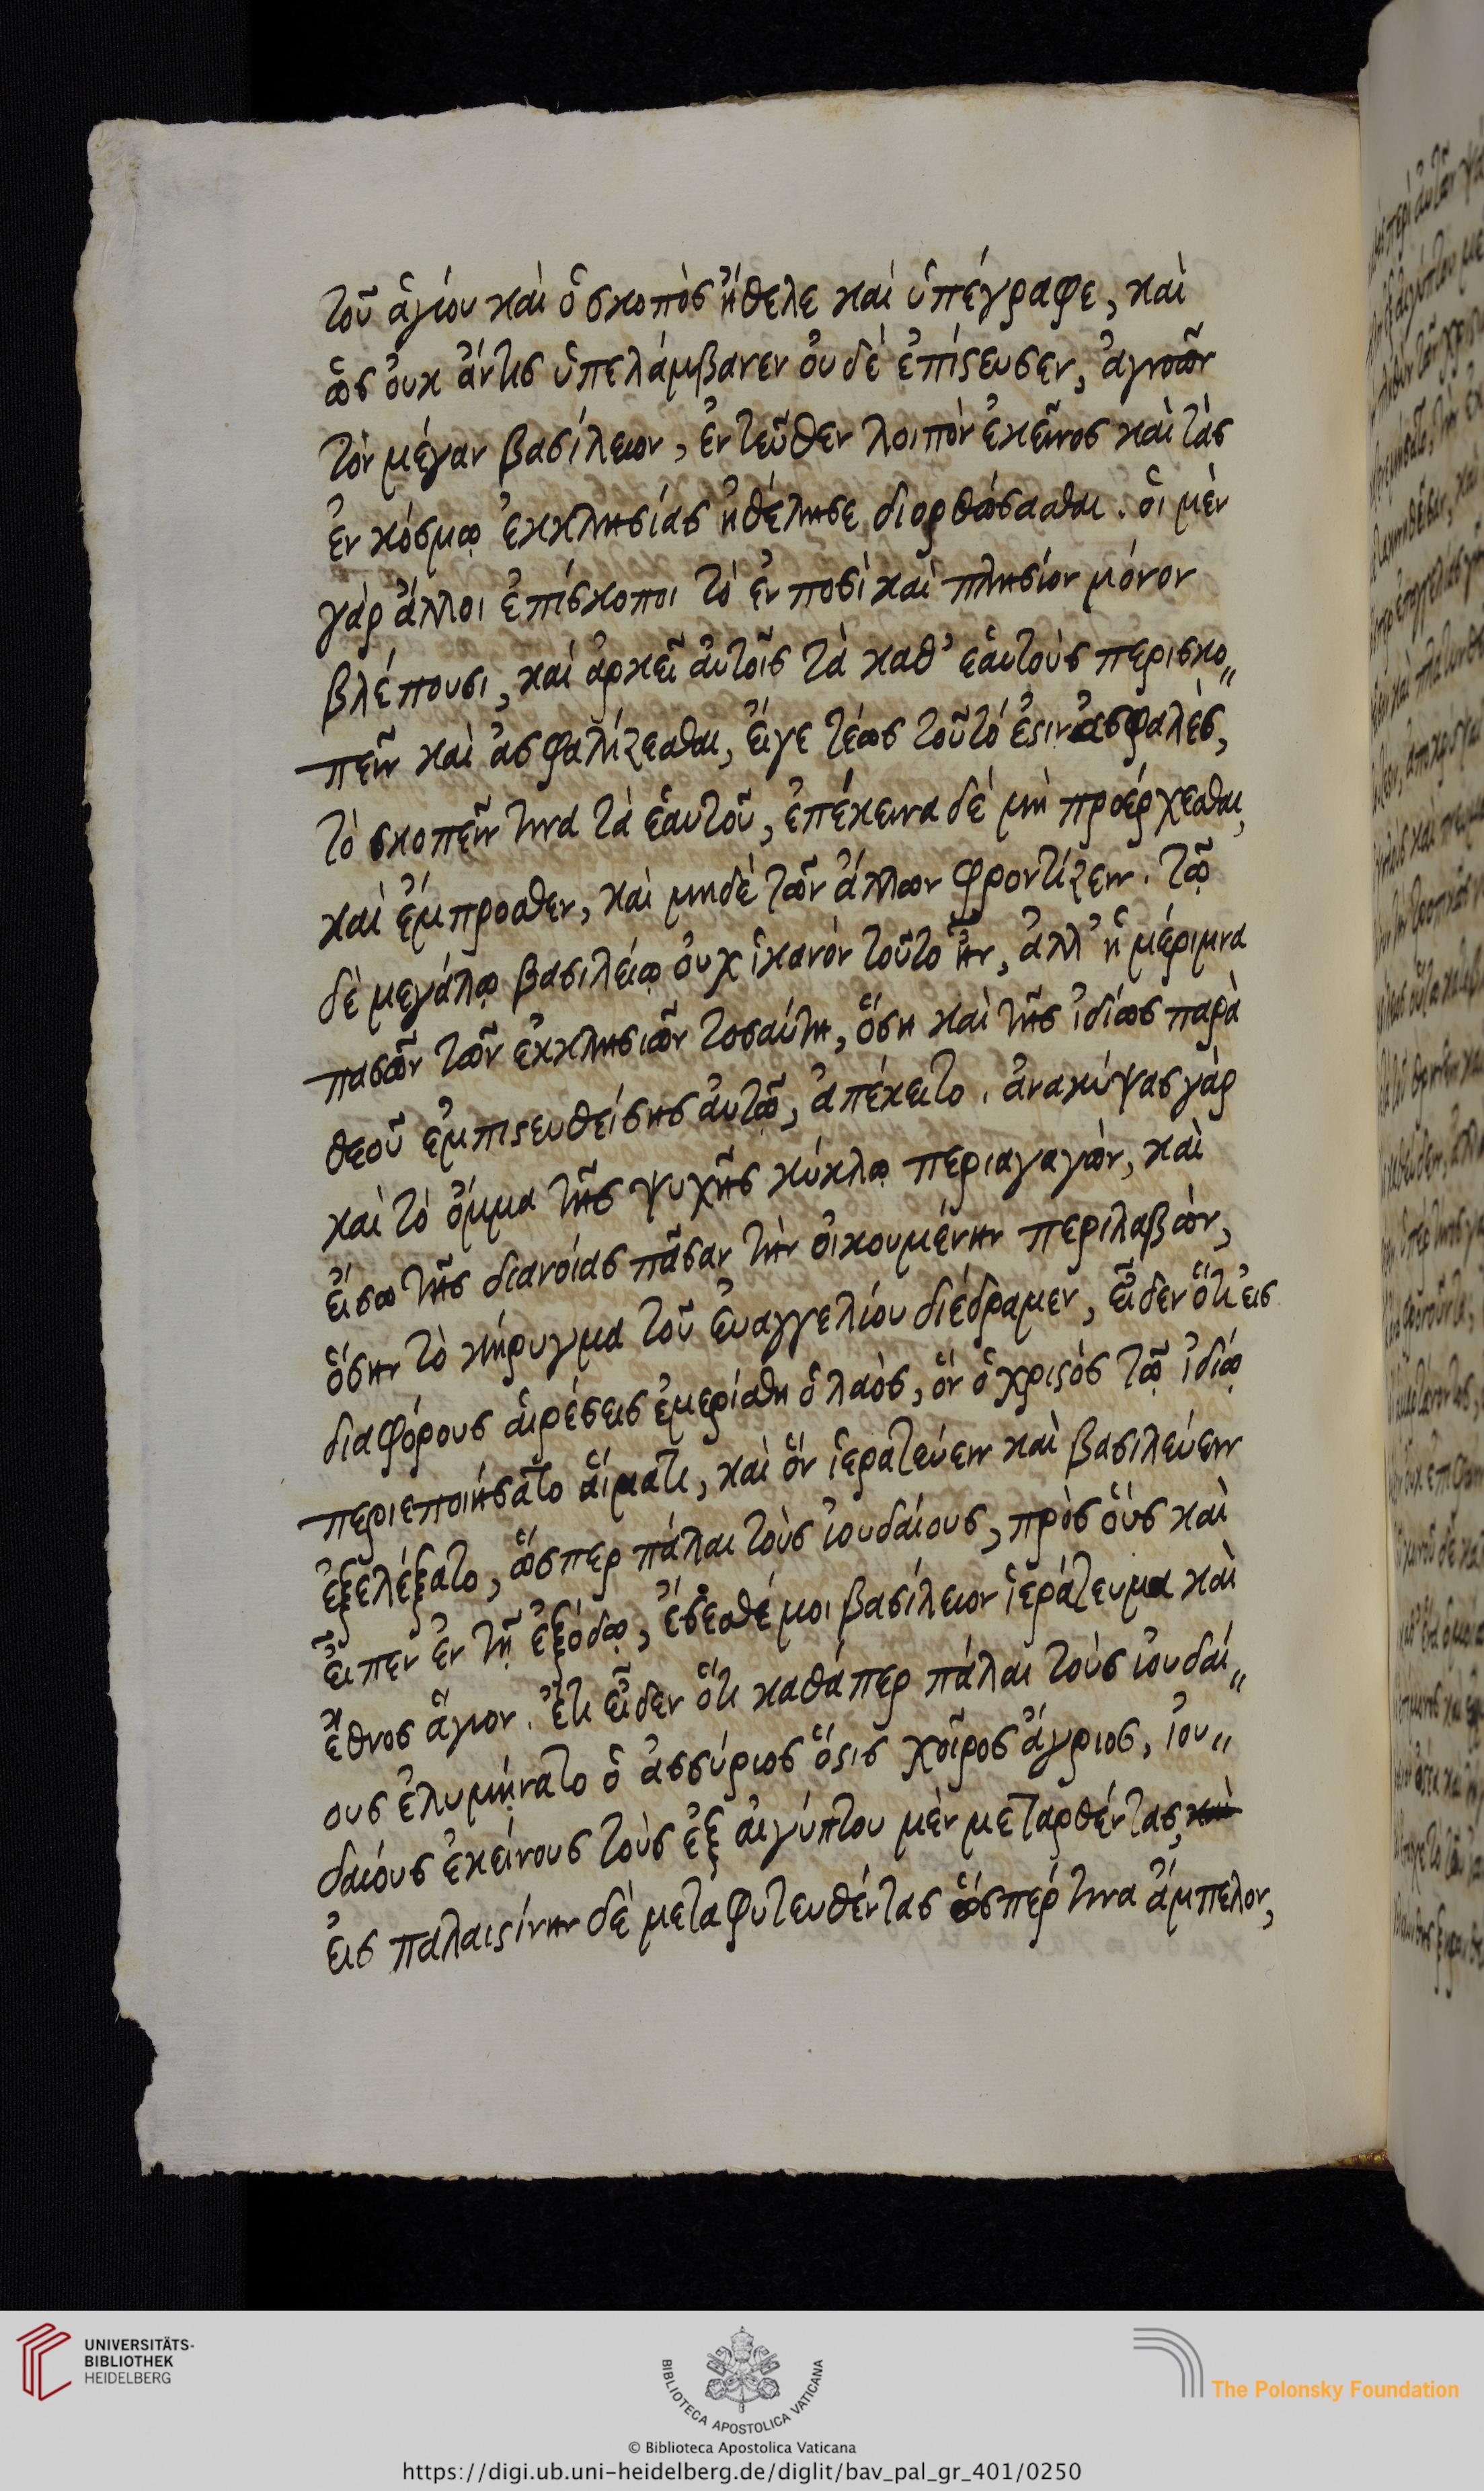 τοῦ ἁγίου καὶ ὁ σκοπὸς ἤθελε καὶ ὑπέγραφε, καὶ
ὡς οὐκ ἄν τις ὑπελάμβανεν οὐδὲ ἐπίστευσεν, ἀγνοῶν
τὸν μέγαν βασίλειον, ἐντεῦθεν λοιπὸν ἐκεῖνος καὶ τὰς
ἐν κόσμῳ ἐκκλησίας ἠθέλησε διορθώσασθαι. οἱ μὲν
γὰρ ἄλλοι ἐπίσκοποι τὸ ἐν ποσὶ καὶ πλησίον μόνον
βλέπουσι, καὶ ἀρκεῖ αὐτοῖς τὰ καθ' ἑαυτοὺς περισκο„
πεῖν καὶ ἀσφαλίζεσθαι, εἴγε τέως τοῦτό ἐστιν ἀσφαλὲς,
τὸ σκοπεῖν τινα τὰ ἑαυτοῦ, ἐπέκεινα δὲ μὴ προέρχεσθαι,
καὶ ἔμπροσθεν, καὶ μηδὲ τῶν ἄλλων φροντίζειν. τῷ
δὲ μεγάλῳ βασιλείῳ οὐχ ἱκανὸν τοῦτο ἦν, ἀλλ' ἡ μέριμνα
πασῶν τῶν ἐκκλησιῶν τοσαύτη, ὅση καὶ τῆς ἰδίως παρὰ
θεοῦ ἐμπιστευθείσης αὐτῷ, ἀπέκειτο. ἀνακύψας γὰρ
καὶ τὸ ὄμμα τῆς ψυχῆς κύκλῳ περιαγαγὼν, καὶ
εἴσω τῆς διανοίας πᾶσαν τὴν οἰκουμένην περιλαβὼν,
ὅσην τὸ κήρυγμα τοῦ εὐαγγελίου διέδραμεν, εἶδεν ὅτι εἰς
διαφόρους αἱρέσεις ἐμερίσθη ὁ λαὸς, ὃν ὁ χριστὸς τῷ ἰδίῳ
περιεποιήσατο αἵματι, καὶ ὃν ἱερατεύειν καὶ βασιλεύειν
ἐξελέξατο, ὥσπερ πάλαι τοὺς ἰουδαίους, πρὸς οὓς καὶ
εἶπεν ἐν τῇ ἐξόδῳ, ἔσεσθέ μοι βασίλειον ἱεράτευμα καὶ
ἔθνος ἅγιον. ἔτι εἶδεν ὅτι καθάπερ πάλαι τοὺς ἰουδαί„
ους ἐλυμήνατο ὁ ἀσσύριος ὅστις χοῖρος ἄγριος, ἰου„
δαίους ἐκείνους τοὺς ἐξ αἰγύπτου μὲν μεταρθέντας, καὶ
εἰς παλαιστίνην δὲ μεταφυτευθέντας ὥσπέρ τινα ἄμπελον,
UNIVERSITÄTS-
BIBLIOTHEK
HEIDELBERG
BIBLIOTECA APOSTOLICA VATICANA
The Polonsky Foundation
© Biblioteca Apostolica Vaticana
https://digi.ub.uni-heidelberg.de/diglit/bav_pal_gr_401/0250